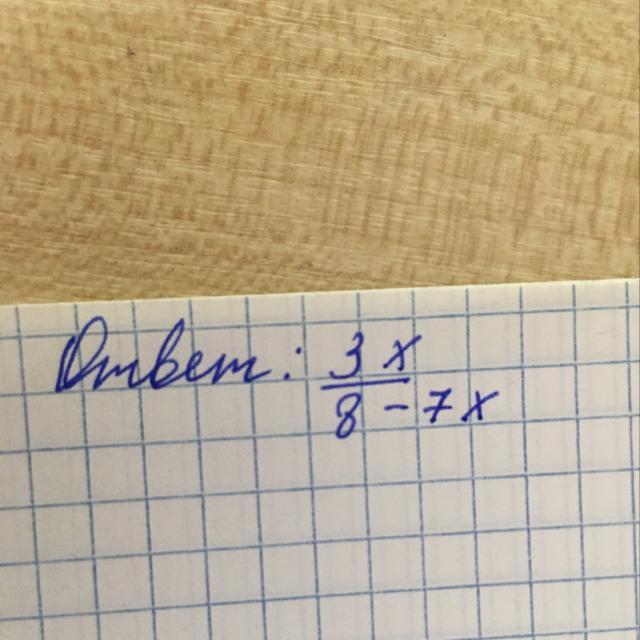 Ответ: 3x
8 - 7x